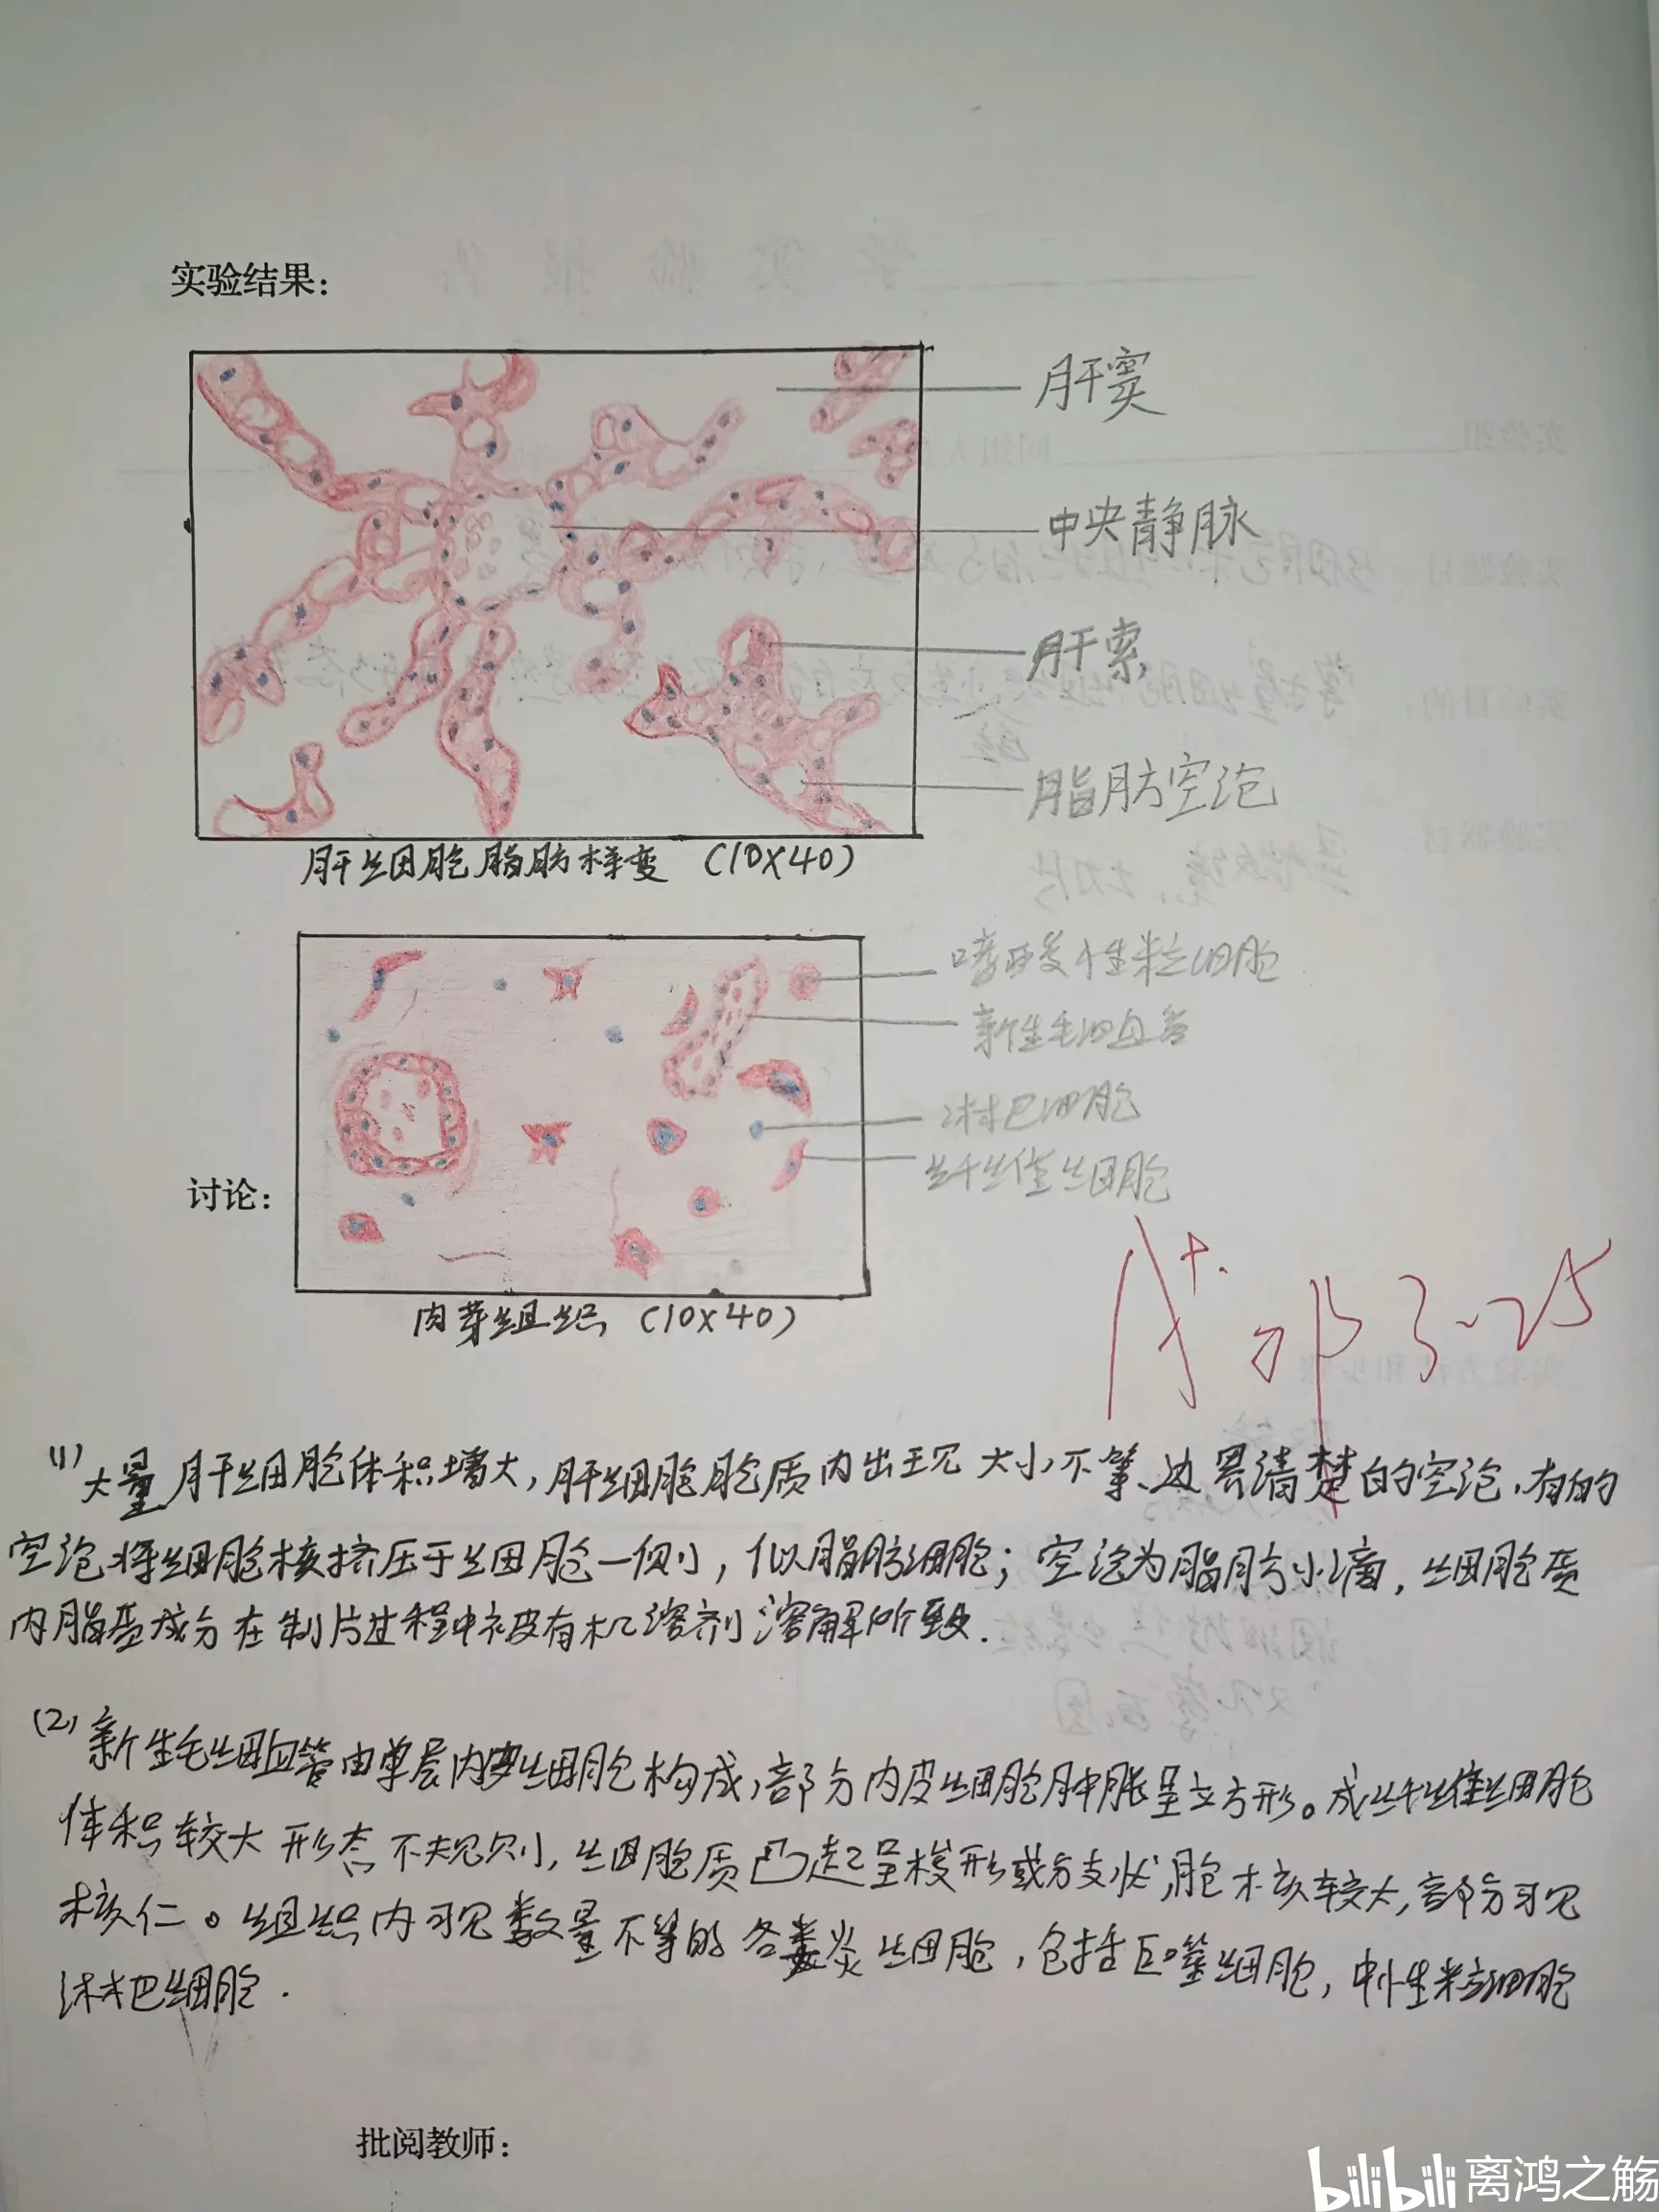 实验结果：
肝窦
中央静脉
肝索
脂肪空泡
肝细胞脂肪样变 (10×40)
嗜酸性粒细胞
新生毛细血管
淋巴细胞
纤维细胞
讨论：
肉芽组织 (10×40)
A+. 3-25
(1) 大量肝细胞体积增大，肝细胞胞质内出现大小不等、边界清楚的空泡，有的
空泡将细胞核挤压于细胞一侧，似脂肪细胞；空泡为脂肪小滴，细胞质
内脂质成分在制片过程中被有机溶剂溶解所致.
(2) 新生毛细血管由单层内皮细胞构成，部分内皮细胞肿胀呈立方形。成纤维细胞
体积较大 形态不规则，细胞质凸起呈梭形或分支状，胞核较大，部分可见
核仁。组织内可见数量不等的各类炎细胞，包括巨噬细胞，中性粒细胞
淋巴细胞.
批阅教师：
bilibili 离鸿之觞